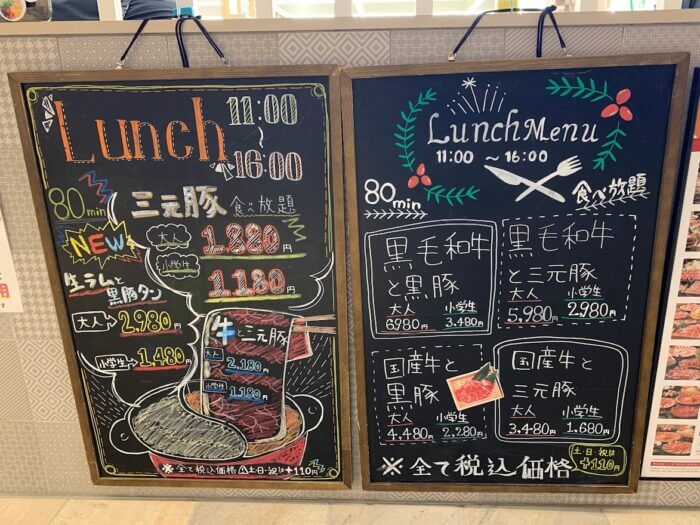 Lunch
11:00
～
16:00
80min
三元豚 食べ放題
大人 1,880円
小学生 1,180円
NEW
生ラムと
黒豚タン
大人→2,980円
小学生→1,480円
牛と三元豚
大人 2,180円
小学生 1,180円
※全て税込価格 土・日・祝は+110円
Lunch Menu
11:00 ～ 16:00
80min 食べ放題
黒毛和牛
と黒豚
大人 小学生
6980円 3,480円
黒毛和牛
と三元豚
大人 小学生
5,980円 2980円
国産牛と
黒豚
大人 小学生
4,480円 2,280円
国産牛と
三元豚
大人 小学生
3,480円 1,680円
※全て税込価格
土・日・祝は
+110円